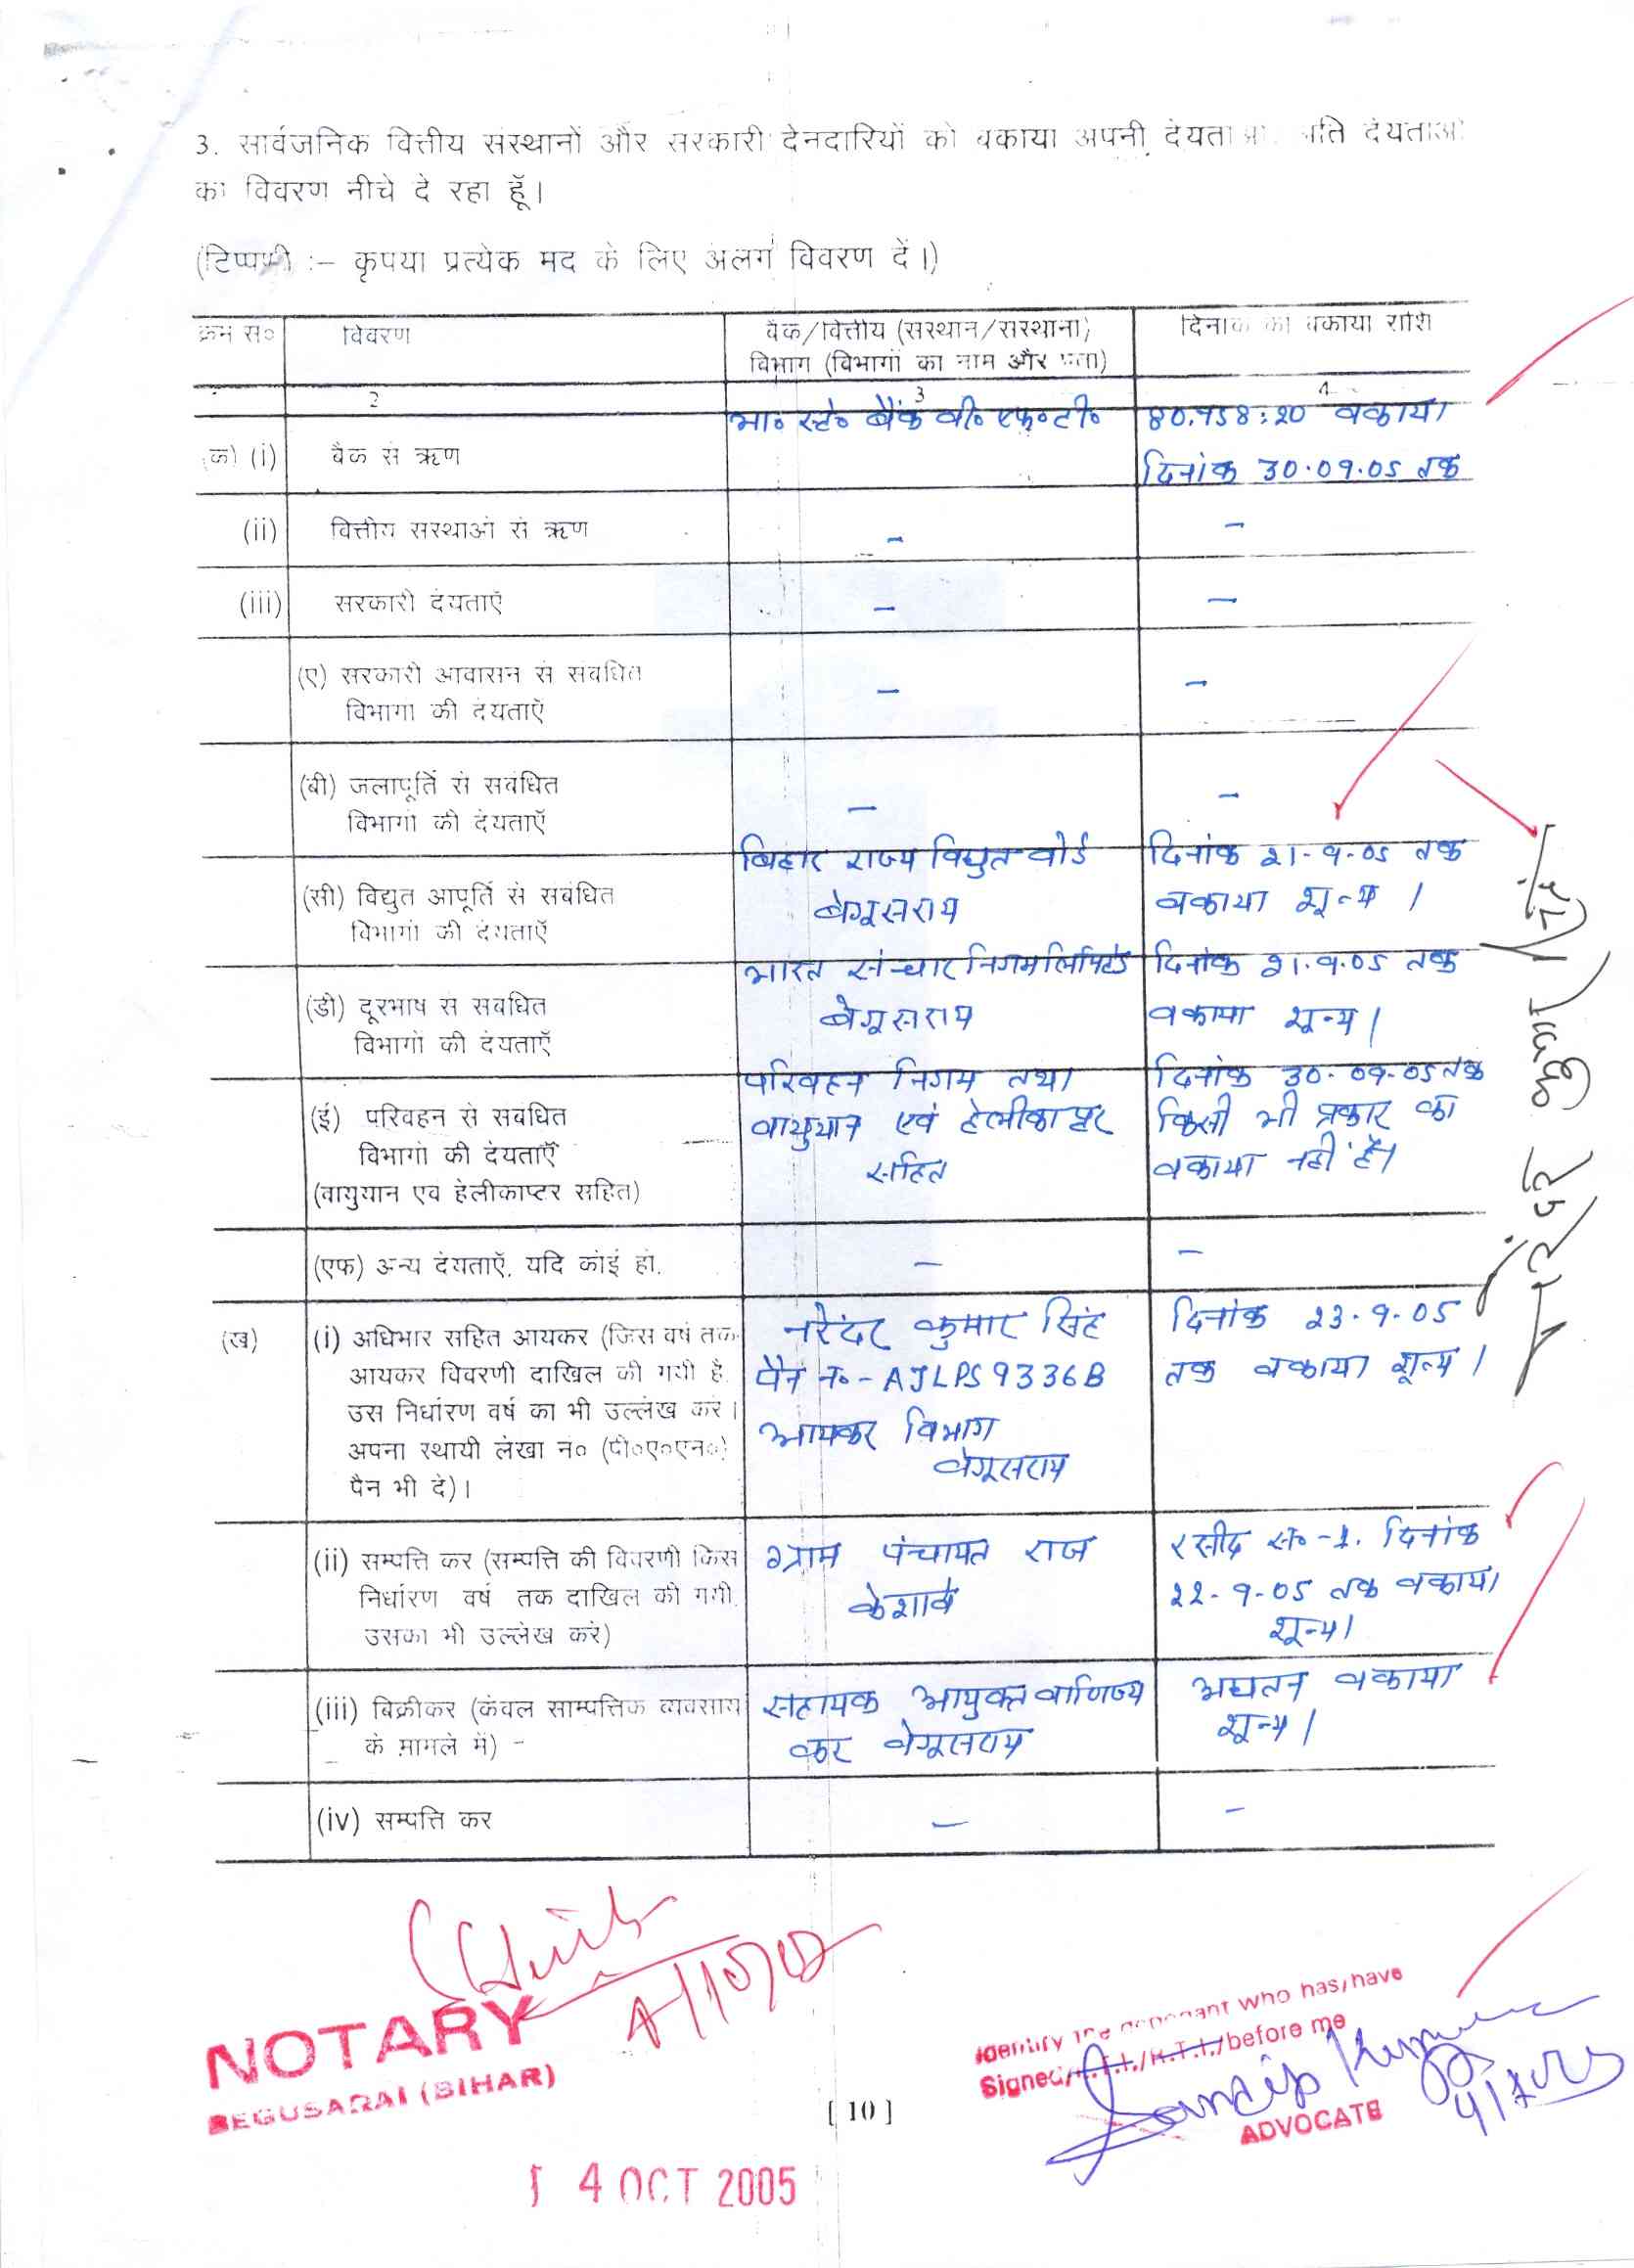 3. सार्वजनिक वित्तीय संस्थानों और सरकारी देनदारियों को बकाया अपनी देयता प्रति देयताओं
का विवरण नीचे दे रहा हूँ।
(टिप्पणी :– कृपया प्रत्येक मद के लिए अलग विवरण दें।)
क्रम सं० विवरण बैंक/वित्तीय (संस्थान/संस्थानों) दिनांक को बकाया राशि
विभाग (विभागों का नाम और पता)
2 3 4
भा० स्टे० बैंक बी० एफ० टी० 80,958:20 बकाया
(क) (i) बैंक से ऋण दिनांक 30.09.05 तक
(ii) वित्तीय संस्थाओं से ऋण – –
(iii) सरकारी देयताएँ – –
(ए) सरकारी आवासन से संबंधित – –
विभागों की देयताएँ
(बी) जलापूर्ति से संबंधित – –
विभागों की देयताएँ
बिहार राज्य विद्युत बोर्ड दिनांक 21-9-05 तक
(सी) विद्युत आपूर्ति से संबंधित बेगूसराय बकाया शून्य।
विभागों की देयताएँ
भारत संचार निगम लिमिटेड दिनांक 21.9.05 तक
(डी) दूरभाष से संबंधित बेगूसराय बकाया शून्य।
विभागों की देयताएँ
परिवहन निगम तथा दिनांक 30-09-05 तक
(ई) परिवहन से संबंधित वायुयान एवं हेलीकाप्टर किसी भी प्रकार का
विभागों की देयताएँ सहित बकाया नहीं है।
(वायुयान एवं हेलीकाप्टर सहित)
(एफ) अन्य देयताएँ, यदि कोई हो. – –
(ख) (i) अधिभार सहित आयकर (जिस वर्ष तक नरेंदर कुमार सिंह दिनांक 23-9-05
आयकर विवरणी दाखिल की गयी है, पैन नं०-AJLPS9336B तक बकाया शून्य।
उस निर्धारण वर्ष का भी उल्लेख करें। आयकर विभाग
अपना स्थायी लेखा नं० (पी०ए०एन०) बेगूसराय
पैन भी दें)।
(ii) सम्पत्ति कर (सम्पत्ति की विवरणी किस ग्राम पंचायत राज रसीद सं०-1. दिनांक
निर्धारण वर्ष तक दाखिल की गयी, केशावे 22-9-05 तक बकाया
उसका भी उल्लेख करें) शून्य।
(iii) बिक्रीकर (केवल साम्पत्तिक व्यवसाय सहायक आयुक्त वाणिज्य अद्यतन बकाया
के मामले में) – कर बेगूसराय शून्य।
(iv) सम्पत्ति कर – –
नरेंदर कुमार सिंह
4/10/05
NOTARY
BEGUSARAI (BIHAR)
Identify the deponant who has/have
Signed/L.T.I./R.T.I./before me
Sandip Kumar
ADVOCATE
[ 10 ]
4 OCT 2005